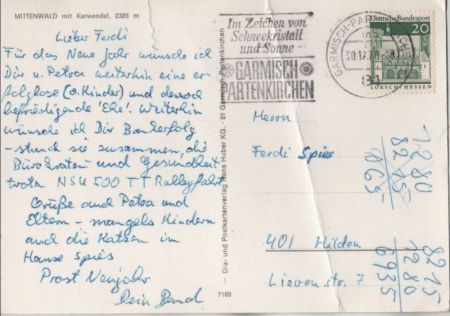 MITTENWALD mit Karwendel, 2385 m
Lieber Ferdi
Für das Neue Jahr wünsche ich
Dir u. Petra weiterhin eine er-
folglose (o. Kinder) und dennoch
befriedigende 'Ehe'. Weiterhin
wünsche ich Dir
sie zusammen, die
Bürokraten und Gesundheit
trotz NSU 500 TT Rallyefahrt
Grüße and Petra und
Eltern - mangels Kindern
auch die Katzen im
Hause Spies
Prost Neujahr
Dein Bernd
Dia- und Postkartenverlag Hans Huber KG. - 81 Garmisch-Partenkirchen
7189
Im Zeichen von
Schneekristall
und Sonne
GARMISCH
PARTENKIRCHEN
GARMISCH-PA
Deutsche Bundespost
20
LORSCH/HESSEN
Herrn
Ferdi Spies
401 Hilden
Lievenstr. 7
7280
8215
865
8215
1280
6935